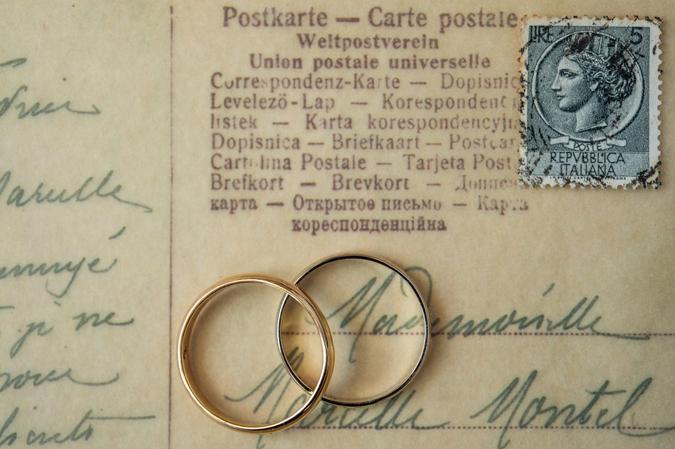 Postkarte — Carte postale
Weltpostverein
Union postale universelle
Correspondenz-Karte — Dopisnic
Levelező-Lap — Korespondenc
listek — Karta korespondencyjn
Dopisnica — Briefkaart — Postcar
Cartolina Postale — Tarjeta Post
Brefkort — Brevkort —
карта — Открытое письмо — Карта
кореспонденційна
LIRE 5
POSTE
REPVBBLICA
ITALIANA
Mademoiselle
Marielle Montel